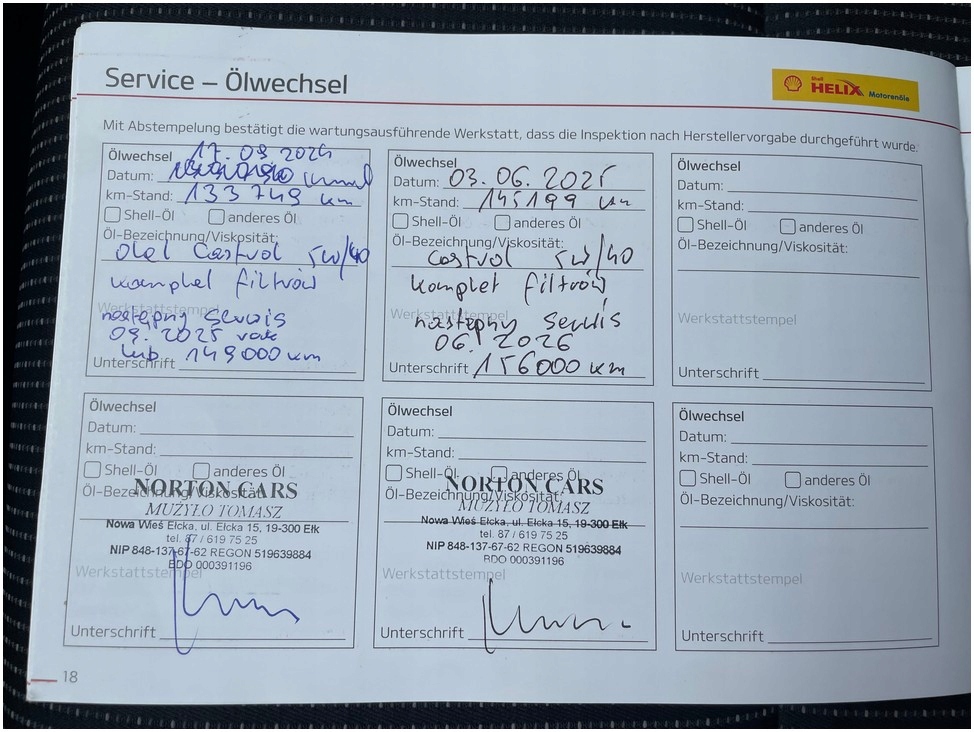 Service – Ölwechsel
Shell
HELIX Motorenöle
Mit Abstempelung bestätigt die wartungsausführende Werkstatt, dass die Inspektion nach Herstellervorgabe durchgeführt wurde.
Ölwechsel 17.09 2024
Datum:
km-Stand: 133 749 km
Shell-Öl anderes Öl
Öl-Bezeichnung/Viskosität:
olej Castrol 5W/40
komplet filtrów
Werkstattstempel
następny serwis
09. 2025 roku
lub 149000 km
Unterschrift
Ölwechsel
Datum: 03. 06. 2025
km-Stand: 145199 km
Shell-Öl anderes Öl
Öl-Bezeichnung/Viskosität:
castrol 5W/40
komplet filtrów
Werkstattstempel
następny serwis
06. 2026
Unterschrift 156000 km
Ölwechsel
Datum:
km-Stand:
Shell-Öl anderes Öl
Öl-Bezeichnung/Viskosität:
Werkstattstempel
Unterschrift
Ölwechsel
Datum:
km-Stand:
Shell-Öl anderes Öl
Öl-Bezeichnung/Viskosität:
NORTON CARS
MUZYŁO TOMASZ
Nowa Wieś Ełcka, ul. Ełcka 15, 19-300 Ełk
tel. 87 / 619 75 25
NIP 848-137-67-62 REGON 519639884
BDO 000391196
Werkstattstempel
Unterschrift
Ölwechsel
Datum:
km-Stand:
Shell-Öl anderes Öl
Öl-Bezeichnung/Viskosität:
NORTON CARS
MUZYŁO TOMASZ
Nowa Wieś Ełcka, ul. Ełcka 15, 19-300 Ełk
tel. 87 / 619 75 25
NIP 848-137-67-62 REGON 519639884
BDO 000391196
Werkstattstempel
Unterschrift
Ölwechsel
Datum:
km-Stand:
Shell-Öl anderes Öl
Öl-Bezeichnung/Viskosität:
Werkstattstempel
Unterschrift
18